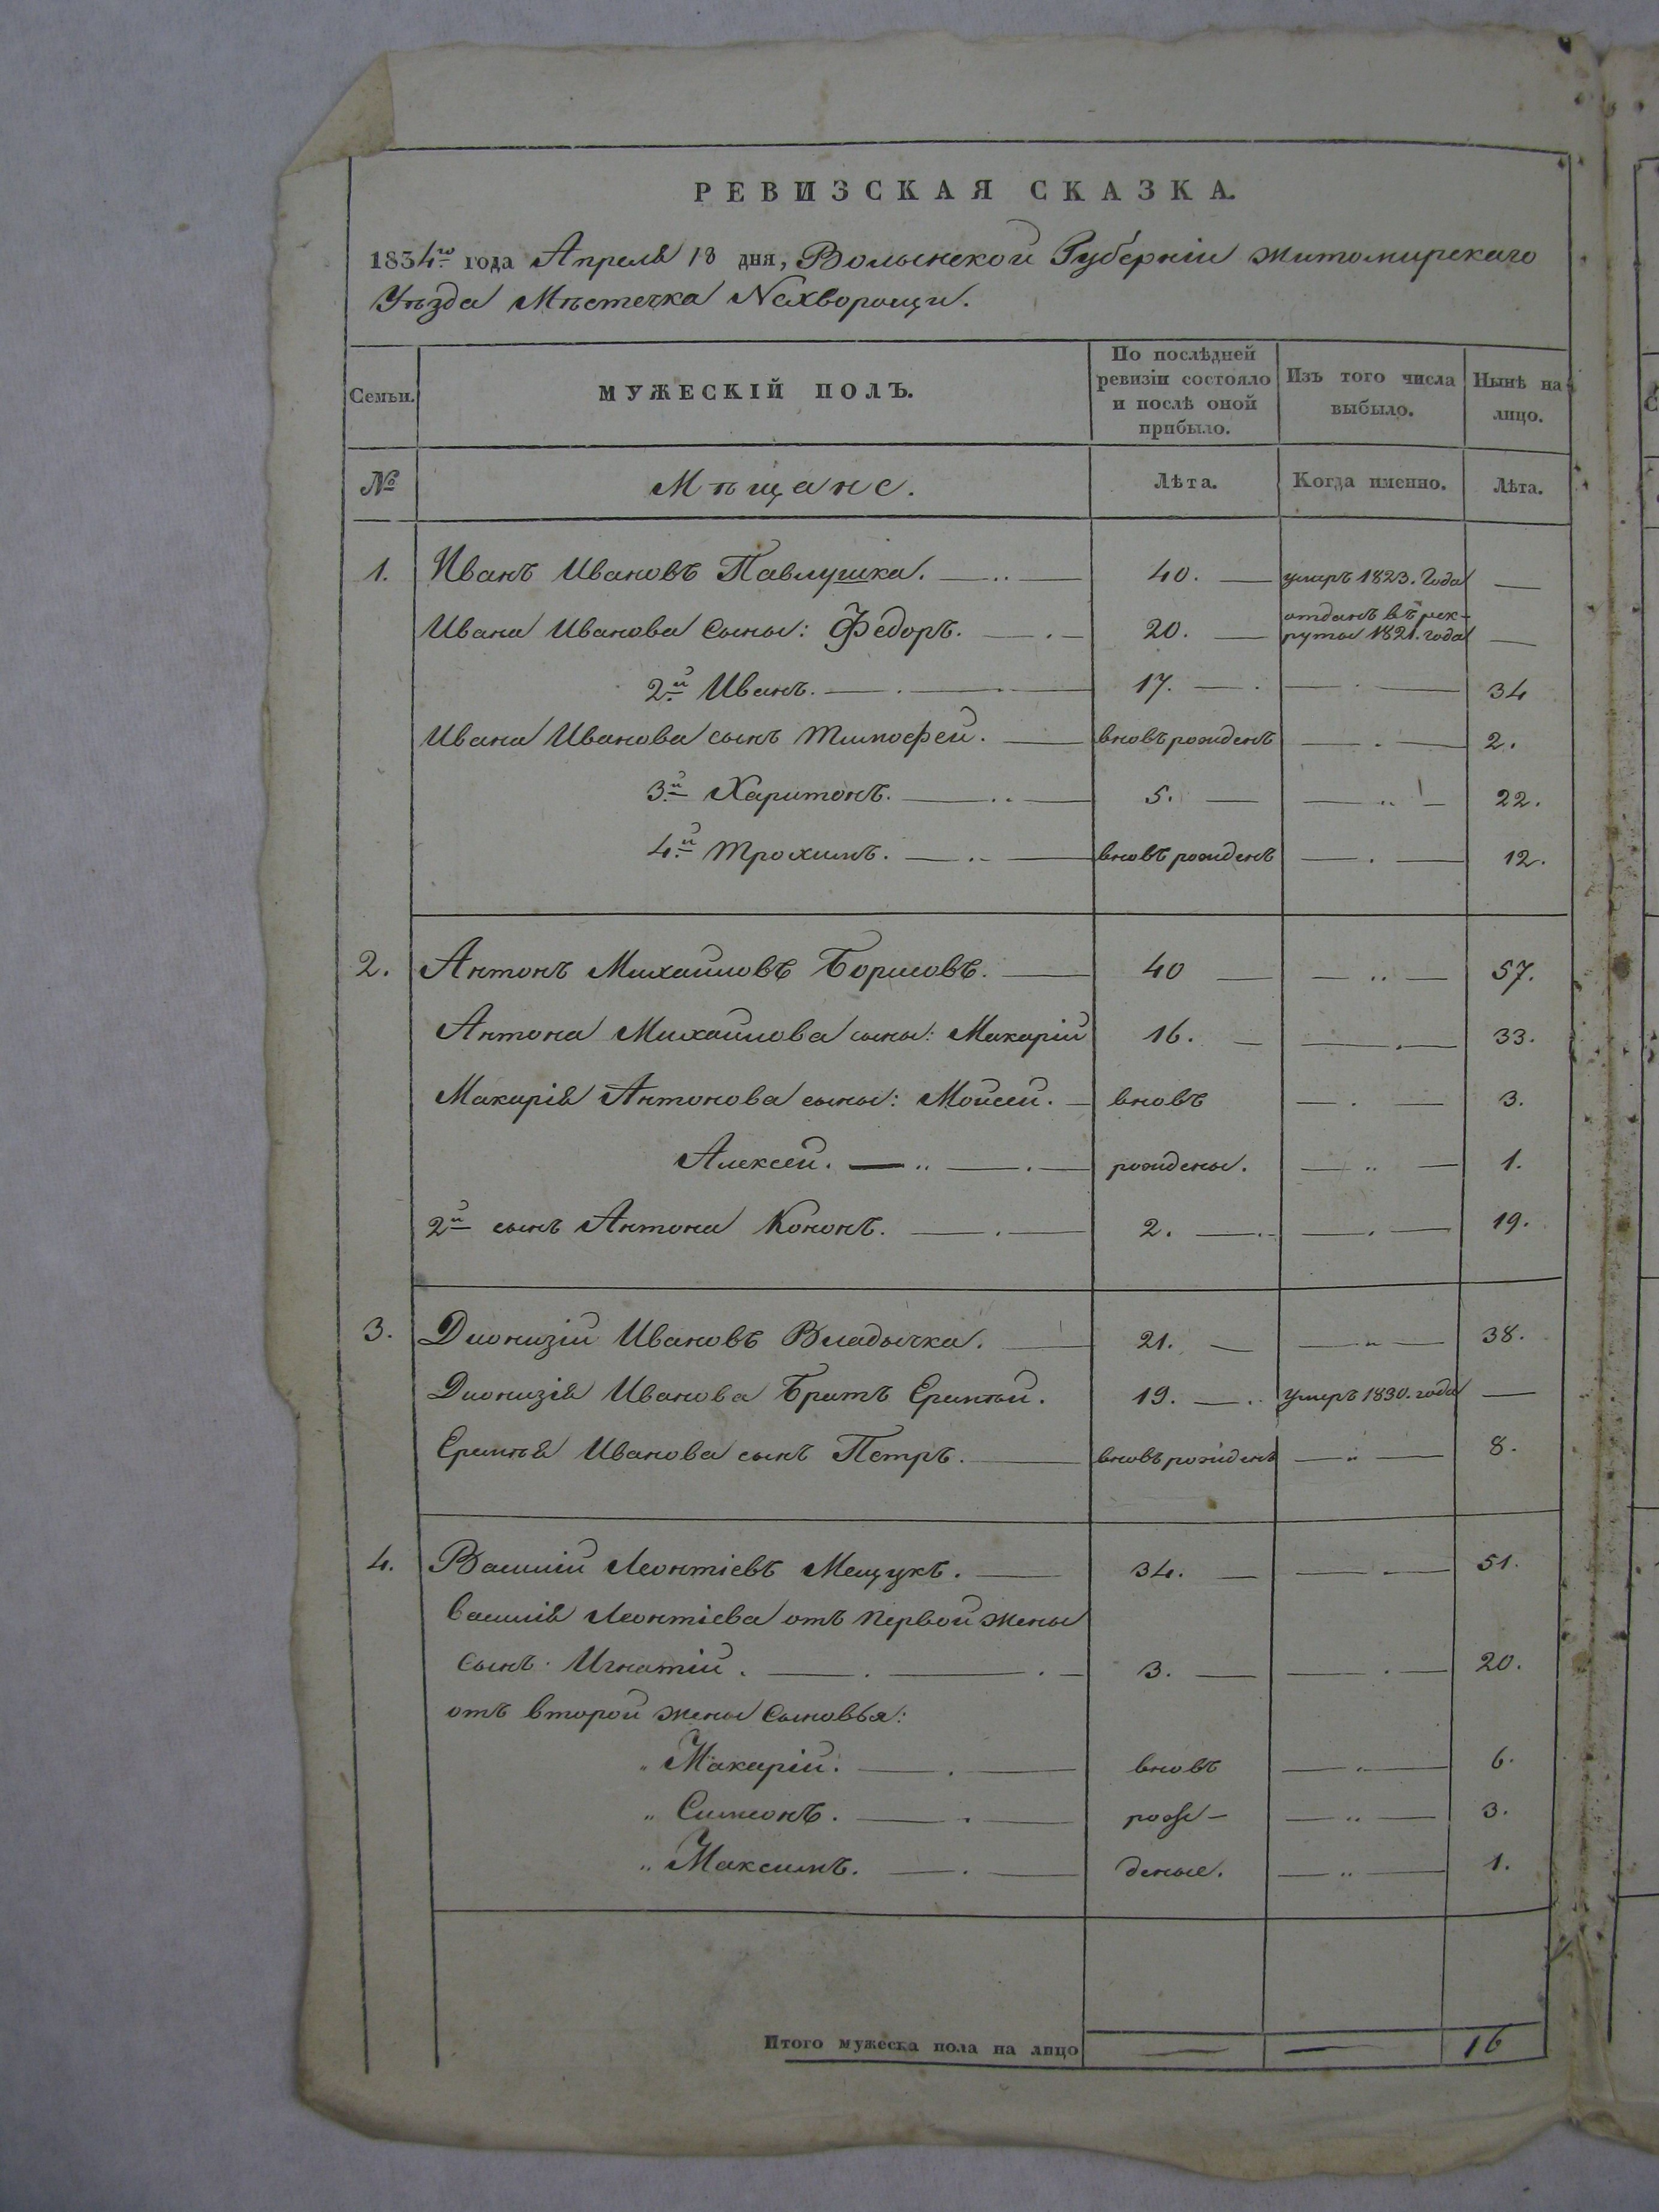 РЕВИЗСКАЯ СКАЗКА.
1834го года Апреля 18 дня, Волынской Губерніи Житомирскаго
Уѣзда Мѣстечка Нехворощи.
Семьи. МУЖЕСКІЙ ПОЛЪ. По послѣдней ревизіи состояло и послѣ оной прибыло. Изъ того числа выбыло. Нынѣ на лицо.
№ Мѣщане. Лѣта. Когда именно. Лѣта.
1. Иванъ Ивановъ Павлушка. 40. умеръ 1823. Года
Ивана Иванова Сыны: Федоръ. 20. отданъ въ рек-
руты 1821. года
2й Иванъ. 17. 34
Ивана Иванова сынъ Тимофей. вновърожденъ 2.
3й Харитонъ. 5. 22.
4й Трохимъ. вновърожденъ 12.
2. Антонъ Михайловъ Борисовъ. 40 57.
Антона Михайлова сыны: Макарій 16. 33.
Макарія Антонова сыны: Мойсей. вновь 3.
Алексей. рождены. 1.
2й сынъ Антона Кононъ. 2. 19.
3. Дионизій Ивановъ Владычка. 21. 38.
Дионизія Иванова Братъ Еремѣй. 19. умеръ 1830. года
Еремѣя Иванова сынъ Петръ. вновърожденъ 8.
4. Василій Леонтіевъ Мещукъ. 34. 51.
Василія Леонтіева отъ первой жены
сынъ Игнатій. 3. 20.
отъ второй жены Сыновья:
„ Макарій. вновъ 6.
„ Симеонъ. рож- 3.
„ Максимъ. деные. 1.
Итого мужеска пола на лицо 16